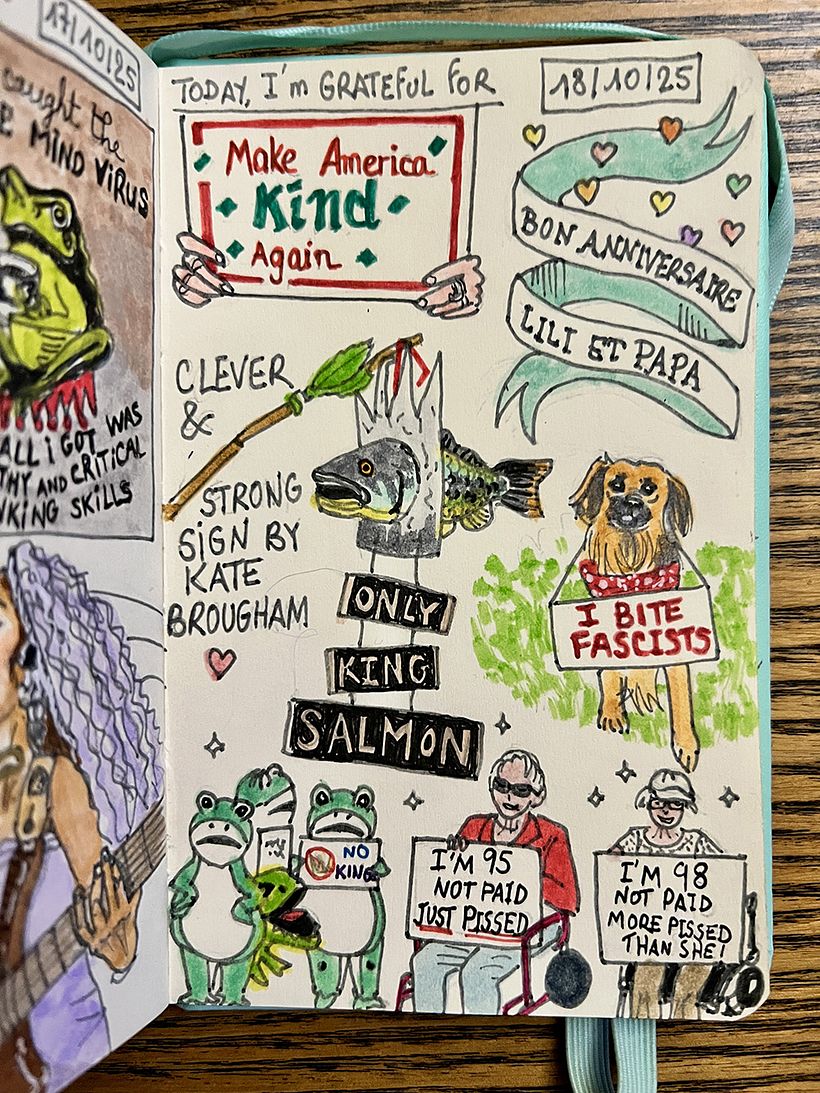 17/10/25
caught the
MIND VIRUS
ALL I GOT WAS
AND CRITICAL
SKILLS
TODAY, I'm GRATEFUL FOR
18/10/25
Make America
Kind
Again
BON ANNIVERSAIRE
LILI ET PAPA
CLEVER
&
STRONG
SIGN BY
KATE
BROUGHAM
ONLY
KING
SALMON
I BITE
FASCISTS
NO
KING
I'M 95
NOT PAID
JUST PISSED
I'M 98
NOT PAID
MORE PISSED
THAN SHE!